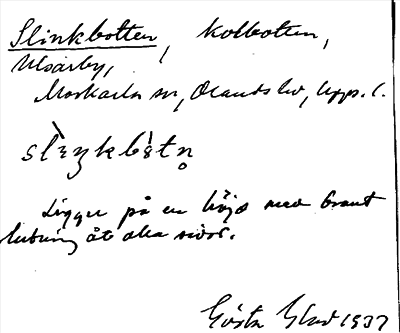 Slinkbotten, Kolbotten,
Ulvarby,
Morkarla sn, Olands hd, Upps. l.
slìŋkbòtn̥
Ligger på en höjd med brant
lutning åt alla sidor.
Gösta 1937